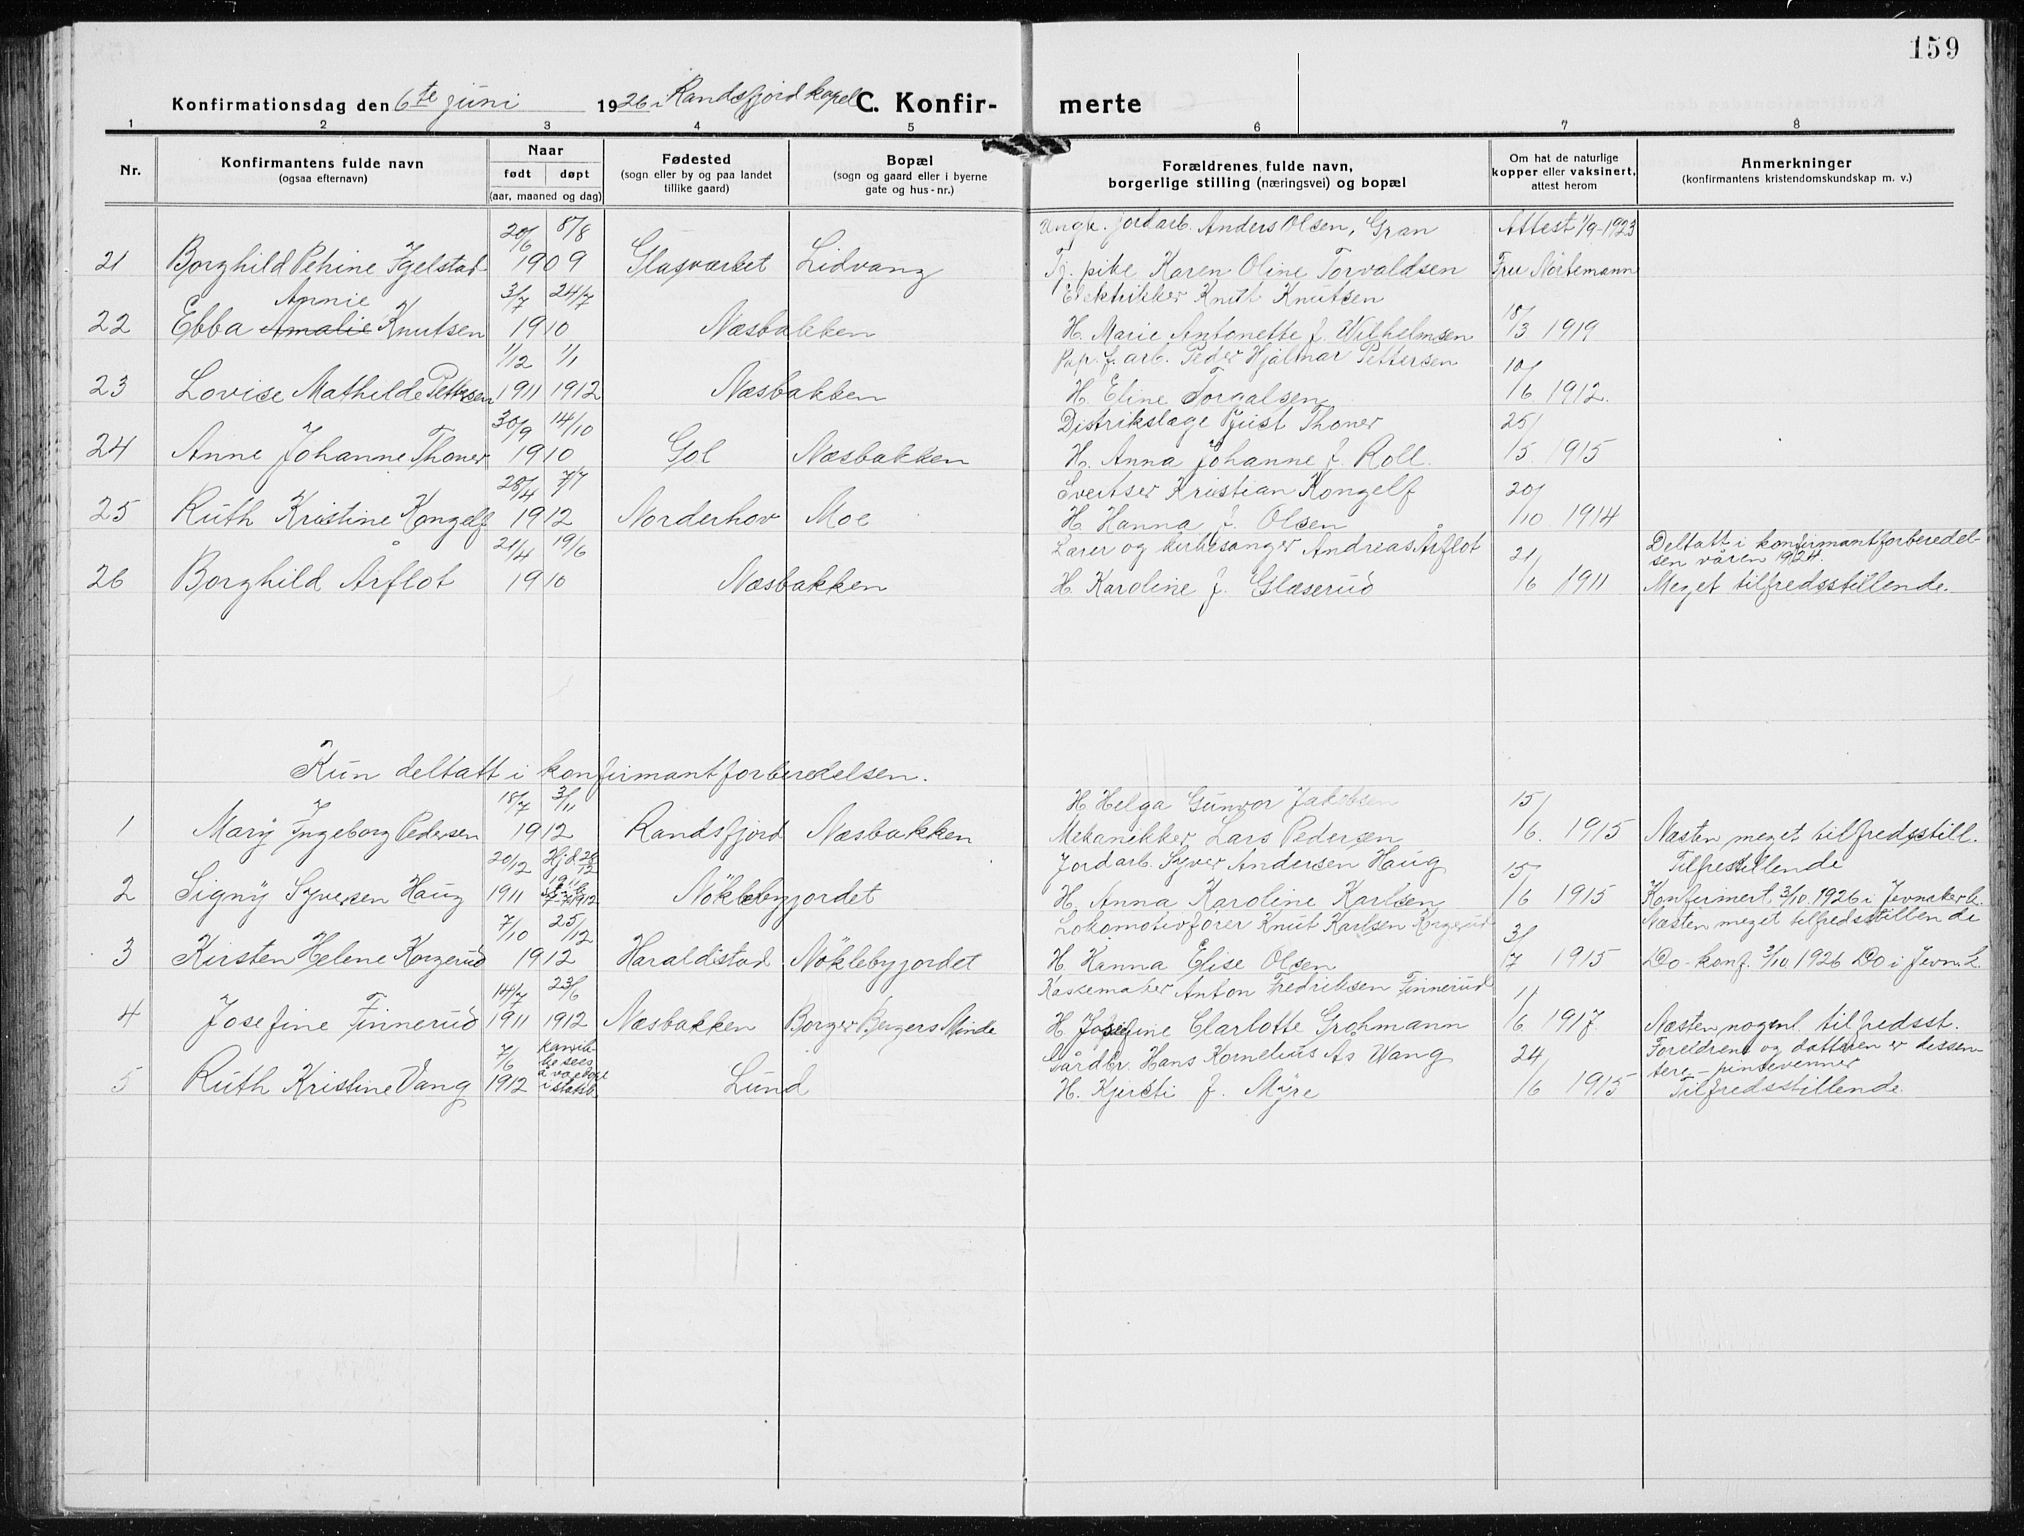 159
Konfirmationsdag den 6te juni 1926 i Randsfjord kapel C. Konfirmerte
1 2 3 4 5 6 7 8
Nr. Konfirmantens fulde navn (ogsaa efternavn) Naar født døpt (aar, maaned og dag) Fødested (sogn eller by og paa landet tillike gaard) Bopæl (sogn og gaard eller i byerne gate og hus-nr.) Forældrenes fulde navn, borgerlige stilling (næringsvei) og bopæl Om hat de naturlige kopper eller vaksinert, attest herom Anmerkninger (konfirmantens kristendomskundskap m. v.)
20/6 8/8 Ungk. jordarb. Anders Olsen, Gran Attest 1/9-1923
21 Borghild Petrine Igelstad 1909 Glasværket Lidvang Tj. pike Karen Oline Torvaldsen Fru Nörtemann
Annie 3/7 24/7 Elektrikker Knut Knutsen
22 Ebba Amalie Knutsen 1910 Næsbakken H. Marie Antonette f. Wilhelmsen 18/3 1919
1/12 1/1 Pap. f. arb. Peder Hjalmar Pettersen
23 Lovise Mathilde Pettersen 1911 1912 Næsbakken H. Eline Torgalsen 10/6 1912.
30/9 14/10 Distrikslæge Just Thoner
24 Anne Johanne Thoner 1910 Gol Næsbakken H. Anna Johanne f. Roll. 25/5 1915
28/4 7/7 Sveitser Kristian Kongelf
25 Ruth Kristine Kongelf 1912 Norderhov Moe H. Hanna f. Olsen 20/10 1914
21/4 19/6 Lærer og kirkesanger Andreas Årflot Deltatt i konfirmantforberedelsen våren 1924.
26 Borghild Årflot 1910 Næsbakken H. Karoline f. Glæserud 21/6 1911 Meget tilfredsstillende.
Kun deltatt i konfirmantforberedelsen.
18/7 3/11 H Helga Gunvor Jakobsen
1 Mary Ingeborg Pedersen 1912 Randsfjord Næsbakken Mekanikker Lars Pedersen 15/6. 1915 Næsten meget tilfredsstill.
20/12 Hjd 26/12 Jordarb. Syver Andersen Haug Tilfredstillende
2 Signy Syversen Haug 1911 1911 1912 Nöklebyjordet H. Anna Karoline Karlsen 15/6 1915 Konfirmert 3/10. 1926 i Jevnaker k.
7/10 25/12 Lokomotivförer Knut Karlsen Korgerud Næsten meget tilfredsstillende
3 Kirsten Helene Korgerud 1912 Haraldstad Nöklebyjordet H. Hanna Elise Olsen 3/7 1915 Do - konf. 3/10. 1926 Do i Jevn. k.
14/7 23/6 Kassemaker Anton Fredriksen Finnerud
4 Josefine Finnerud 1911 1912 Næsbakken Borger Bergers Minde H. Josefine Charlotte Grohmann 1/6 1917 Næsten nogenl. tilfredsst.
7/6 Gårdbr. Hans Kornelius As Wang Foreldrene og datteren er dissentere - pintevenner
5 Ruth Kristine Vang 1912 Lund H. Kjersti f. Myre 24/6 1915 Tilfredsstillende